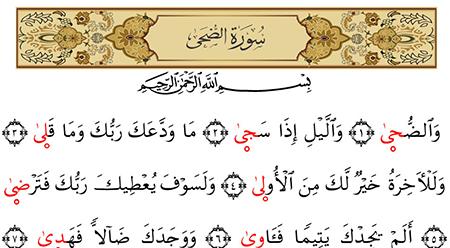 سُورَةُ الضُّحَى
بِسْمِ اللَّهِ الرَّحْمَٰنِ الرَّحِيمِ
وَالضُّحَىٰ ﴿١﴾ وَاللَّيْلِ إِذَا سَجَىٰ ﴿٢﴾ مَا وَدَّعَكَ رَبُّكَ وَمَا قَلَىٰ ﴿٣﴾
وَلَلْآخِرَةُ خَيْرٌ لَّكَ مِنَ الْأُولَىٰ ﴿٤﴾ وَلَسَوْفَ يُعْطِيكَ رَبُّكَ فَتَرْضَىٰ
﴿٥﴾ أَلَمْ يَجِدْكَ يَتِيمًا فَآوَىٰ ﴿٦﴾ وَوَجَدَكَ ضَالًّا فَهَدَىٰ ﴿٧﴾